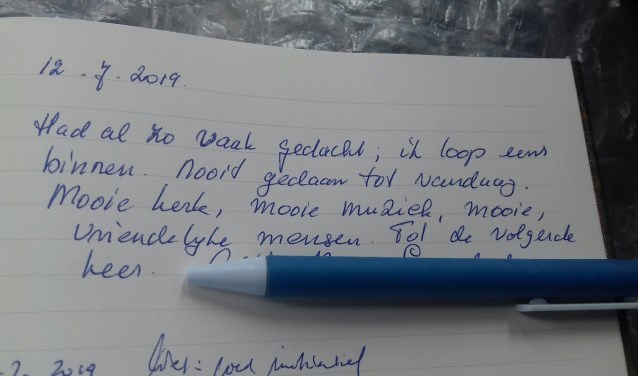 12.7.2019.
Had al zo vaak gedacht; ik loop eens
binnen. Nooit gedaan tot vandaag.
Mooie kerk, mooie muziek, mooie,
vriendelijke mensen. Tot de volgende
keer.
2019